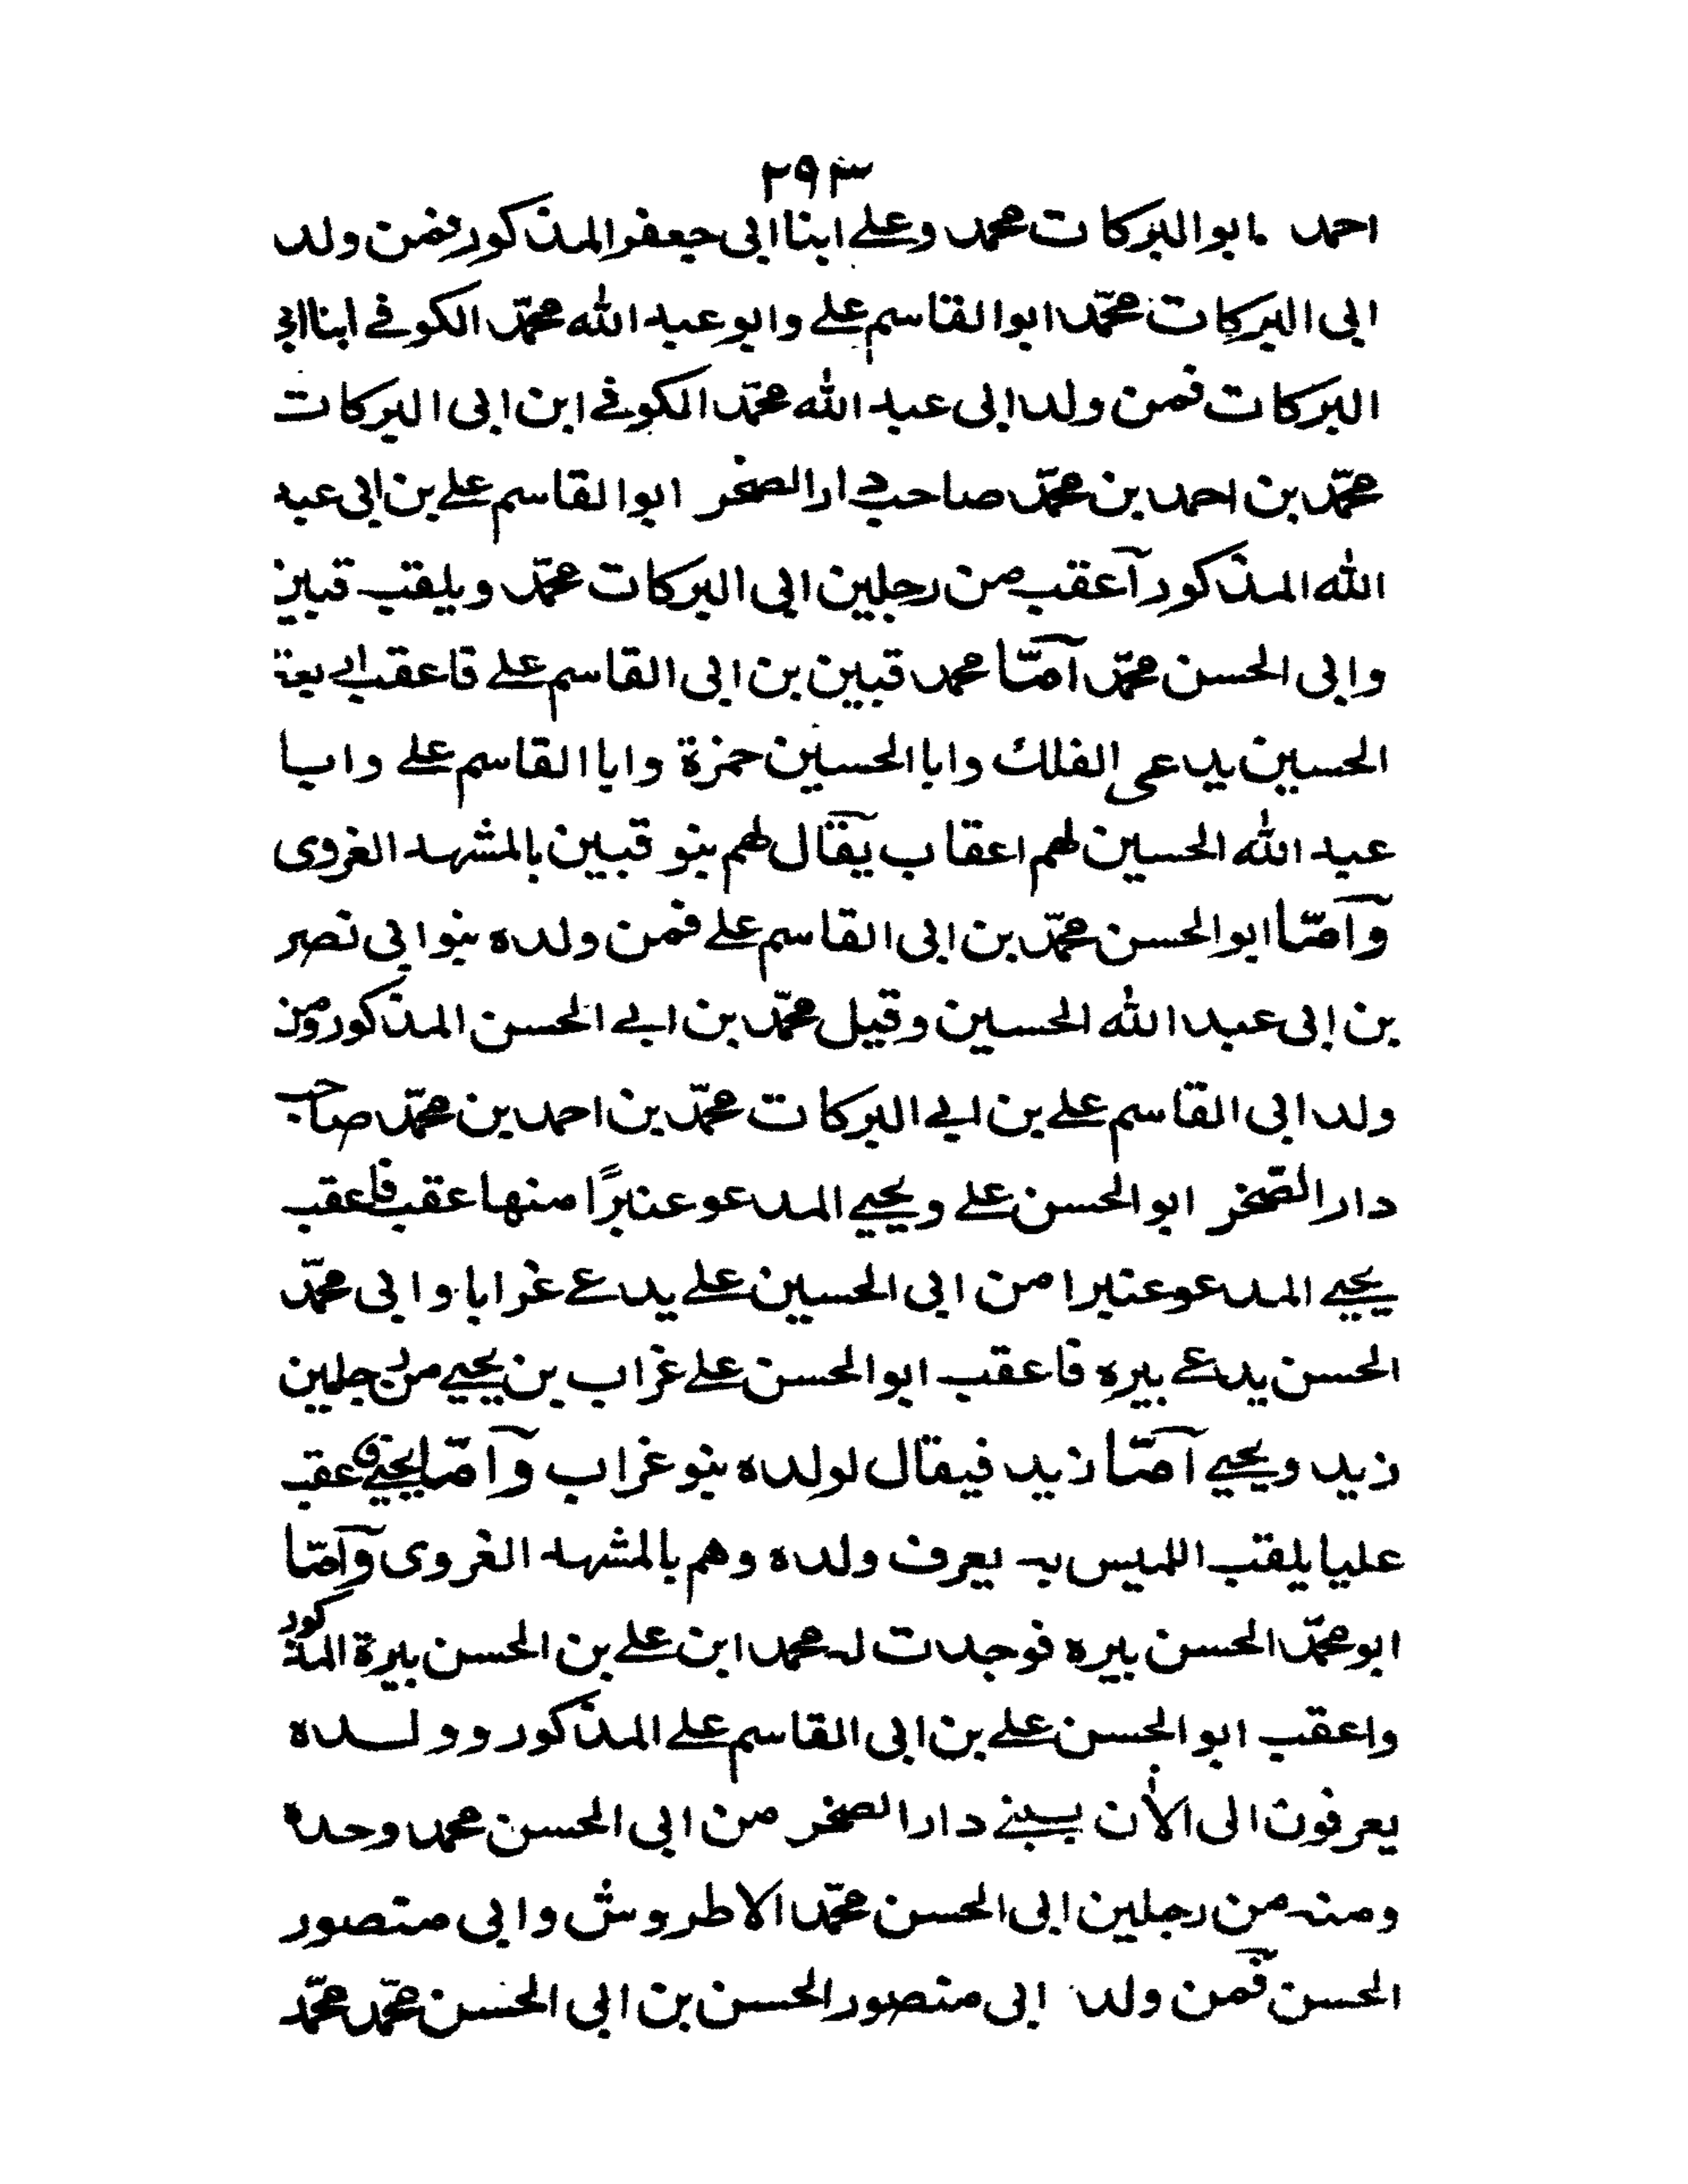 ٢٩٣
احمد ابوالبركات محمد وعلے ابنا ابى جعفرالمذكور فمن ولد
ابى البركات محمّد ابوالقاسم علے وابو عبد الله محمّد الكوفے ابنا ابى
البركات فمن ولد ابى عبد الله محمّد الكوفے ابن ابى البركات
محمّد بن احمد بن محمّد صاحب دارالصخر ابوالقاسم علے بن ابى عبد
الله المذكور آعقب من رجلين ابى البركات محمّد ويلقب قبين
وابى الحسن محمّد آمّا محمد قبين بن ابى القاسم علے فاعقب ابے
الحسين يدعى الفلك وابا الحسين حمزة وابا القاسم علے وابا
عبد الله الحسين لهم اعقاب يقال لهم بنو قبين بالمشهد الغروى
وآمّا ابوالحسن محمّد بن ابى القاسم علے فمن ولده بنوابى نصر
بن ابى عبد الله الحسين وقيل محمّد بن ابے الحسن المذكور ومن
ولد ابى القاسم علے بن ابے البركات محمّد بن احمد بن محمّد صاحب
دارالصّخر ابوالحسن علے ويحيے المدعو عنبرًا منها عقب فاعقب
يحيے المدعو عنبرا من ابى الحسين علے يدعے غرابا وابى محمّد
الحسن يدعے بيره فاعقب ابوالحسن علے غراب بن يحيے من رجلين
زيد ويحيے آمّا زيد فيقال لولده بنو غراب وآمّا يحيے فاعقب
عليا يلقب اللميس به يعرف ولده وهم بالمشهد الغروى وآمّا
ابو محمّد الحسن بيره فوجدت له محمد ابن علے بن الحسن بيرة المذكور
واعقب ابوالحسن علے بن ابى القاسم علے المذكور وولده
يعرفون الى الأن ببنے دارالصخر من ابى الحسن محمد وحده
ومنه من رجلين ابى الحسن محمّد الاطروش وابى منصور
الحسن فمن ولد ابى منصور الحسن بن ابى الحسن محمّد محمّد